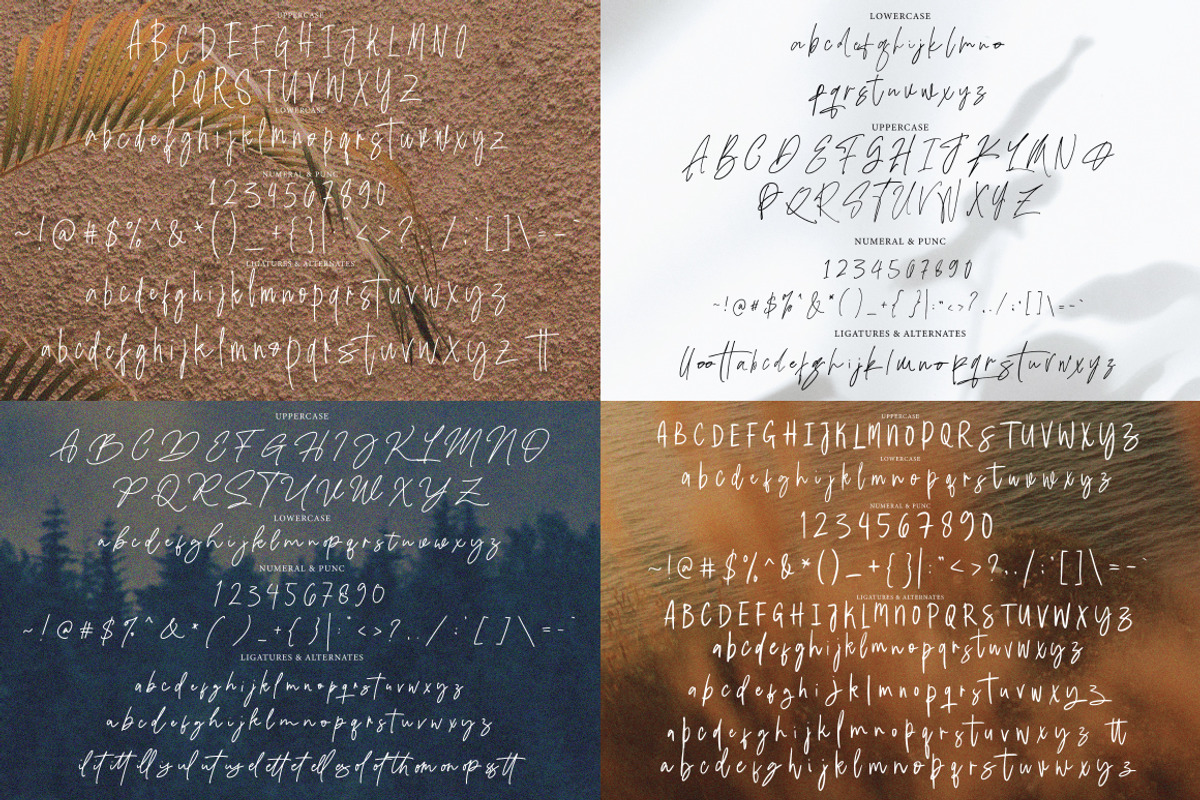 UPPERCASE
ABCDEFGHIJKLMNO
PQRSTUVWXYZ
LOWERCASE
abcdefghijklmnopqrstuvwxyz
NUMERAL & PUNC
1234567890
~!@#$%^&*()_+{}|:"<>?,./;'[]\=-`
LIGATURES & ALTERNATES
abcdefghijklmnopqrstuvwxyz
abcdefghijklmnopqrstuvwxyz tt
LOWERCASE
abcdefghijklmno
pqrstuvwxyz
UPPERCASE
ABCDEFGHIJKLMNO
PQRSTUVWXYZ
NUMERAL & PUNC
1234567890
~!@#$%^&*()_+{}|:"<>?,./;'[]\=-`
LIGATURES & ALTERNATES
lloottabcdefghijklmnopqrstuvwxyz
UPPERCASE
ABCDEFGHIJKLMNO
PQRSTUVWXYZ
LOWERCASE
abcdefghijklmnopqrstuvwxyz
NUMERAL & PUNC
1234567890
~!@#$%^&*()_+{}|:"<>?,./;'[]\=-`
LIGATURES & ALTERNATES
abcdefghijklmnopqrstuvwxyz
abcdefghijklmnopqrstuvwxyz
UPPERCASE
ABCDEFGHIJKLMNOPQRSTUVWXYZ
LOWERCASE
abcdefghijklmnopqrstuvwxyz
NUMERAL & PUNC
1234567890
~!@#$%^&*()_+{}|:"<>?,./;'[]\=-`
LIGATURES & ALTERNATES
ABCDEFGHIJKLMNOPQRSTUVWXYZ
abcdefghijklmnopqrstuvwxyz
abcdefghijklmnopqrstuvwxyz
abcdefghijklmnopqrstuvwxyz tt
abcdefghijklmnopqrstuvwxyz